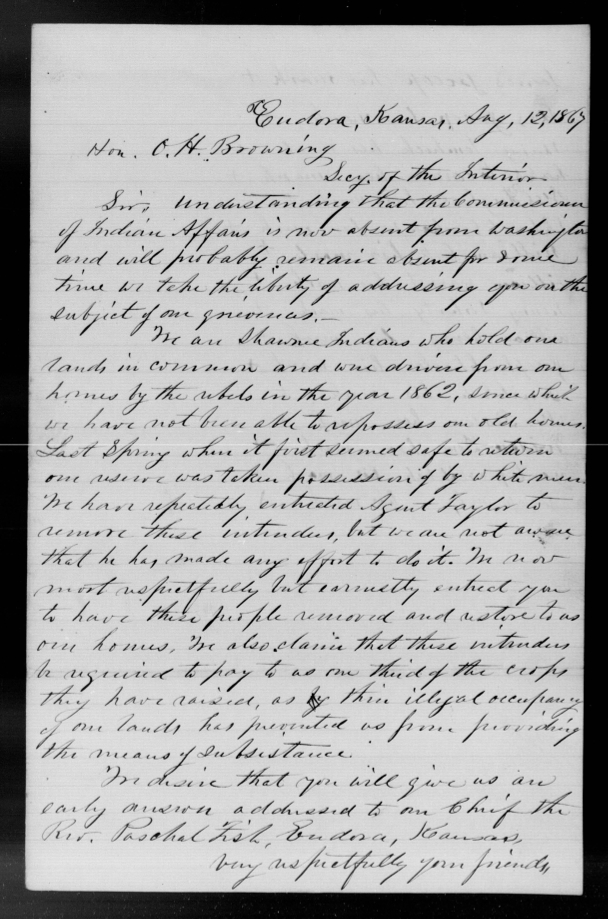 Eudora, Kansas, Aug, 12, 1867
Hon. O. H. Browning
Secy. of the Interior
Sir, Understanding that the Commissioner
of Indian Affairs is now absent from Washington
and will probably remain absent for some
time we take the liberty of addressing you on the
subject of our grievences.—
We are Shawnee Indians who hold our
lands in common and were driven from our
homes by the rebels in the year 1862, since which
we have not been able to repossess our old homes.
Last Spring when it first seemed safe to return
our reserve was taken possession of by white men.
We have repeatedly entreated Agent Taylor to
remove these intruders, but we are not aware
that he has made any effort to do it. We now
most respectfully but earnestly entreat you
to have these people removed and restore to us
our homes. We also claim that these intruders
be required to pay to us one third of the crops
they have raised, as by their illegal occupancy
of our lands has prevented us from providing
the means of subsistance.
We desire that you will give us an
early answer addressed to our Chief the
Rev. Paschal Fish, Eudora, Kansas,
very respectfully your friends,